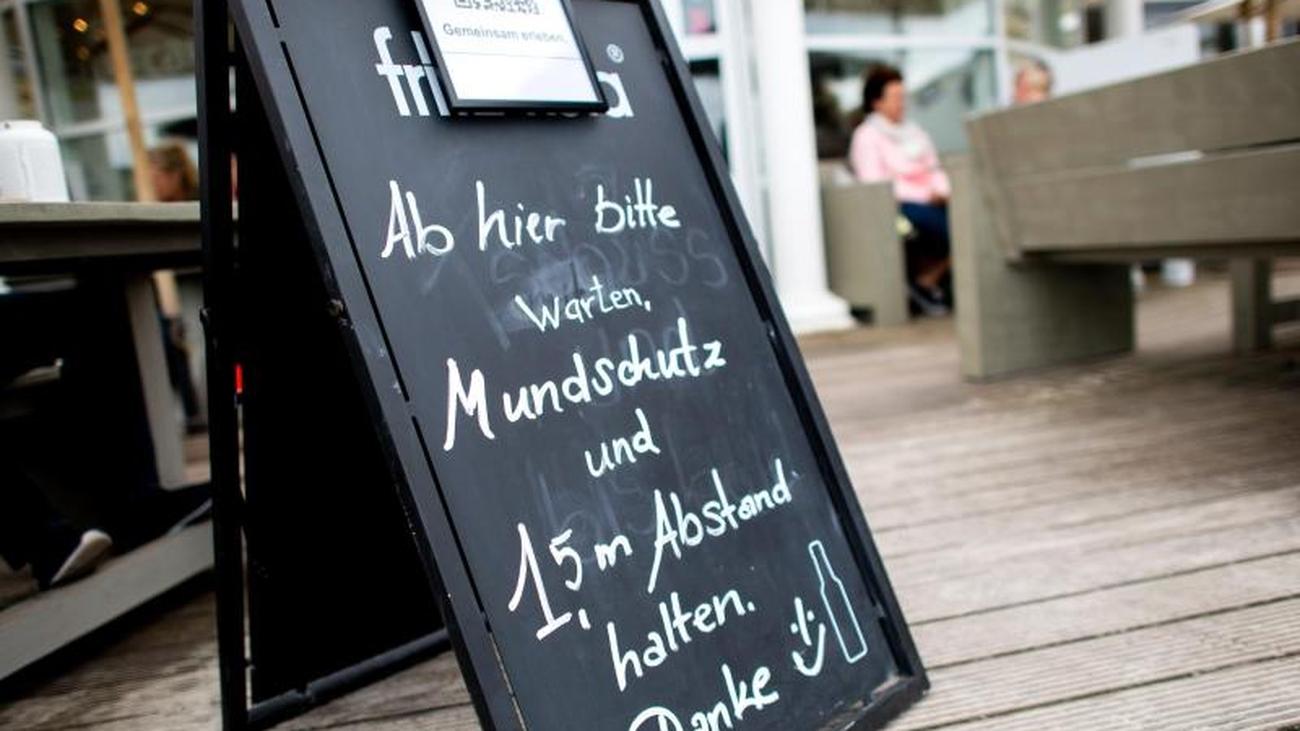 Gemeinsam erleben.
®
Ab hier bitte
warten,
Mundschutz
und
1,5 m Abstand
halten.
Danke